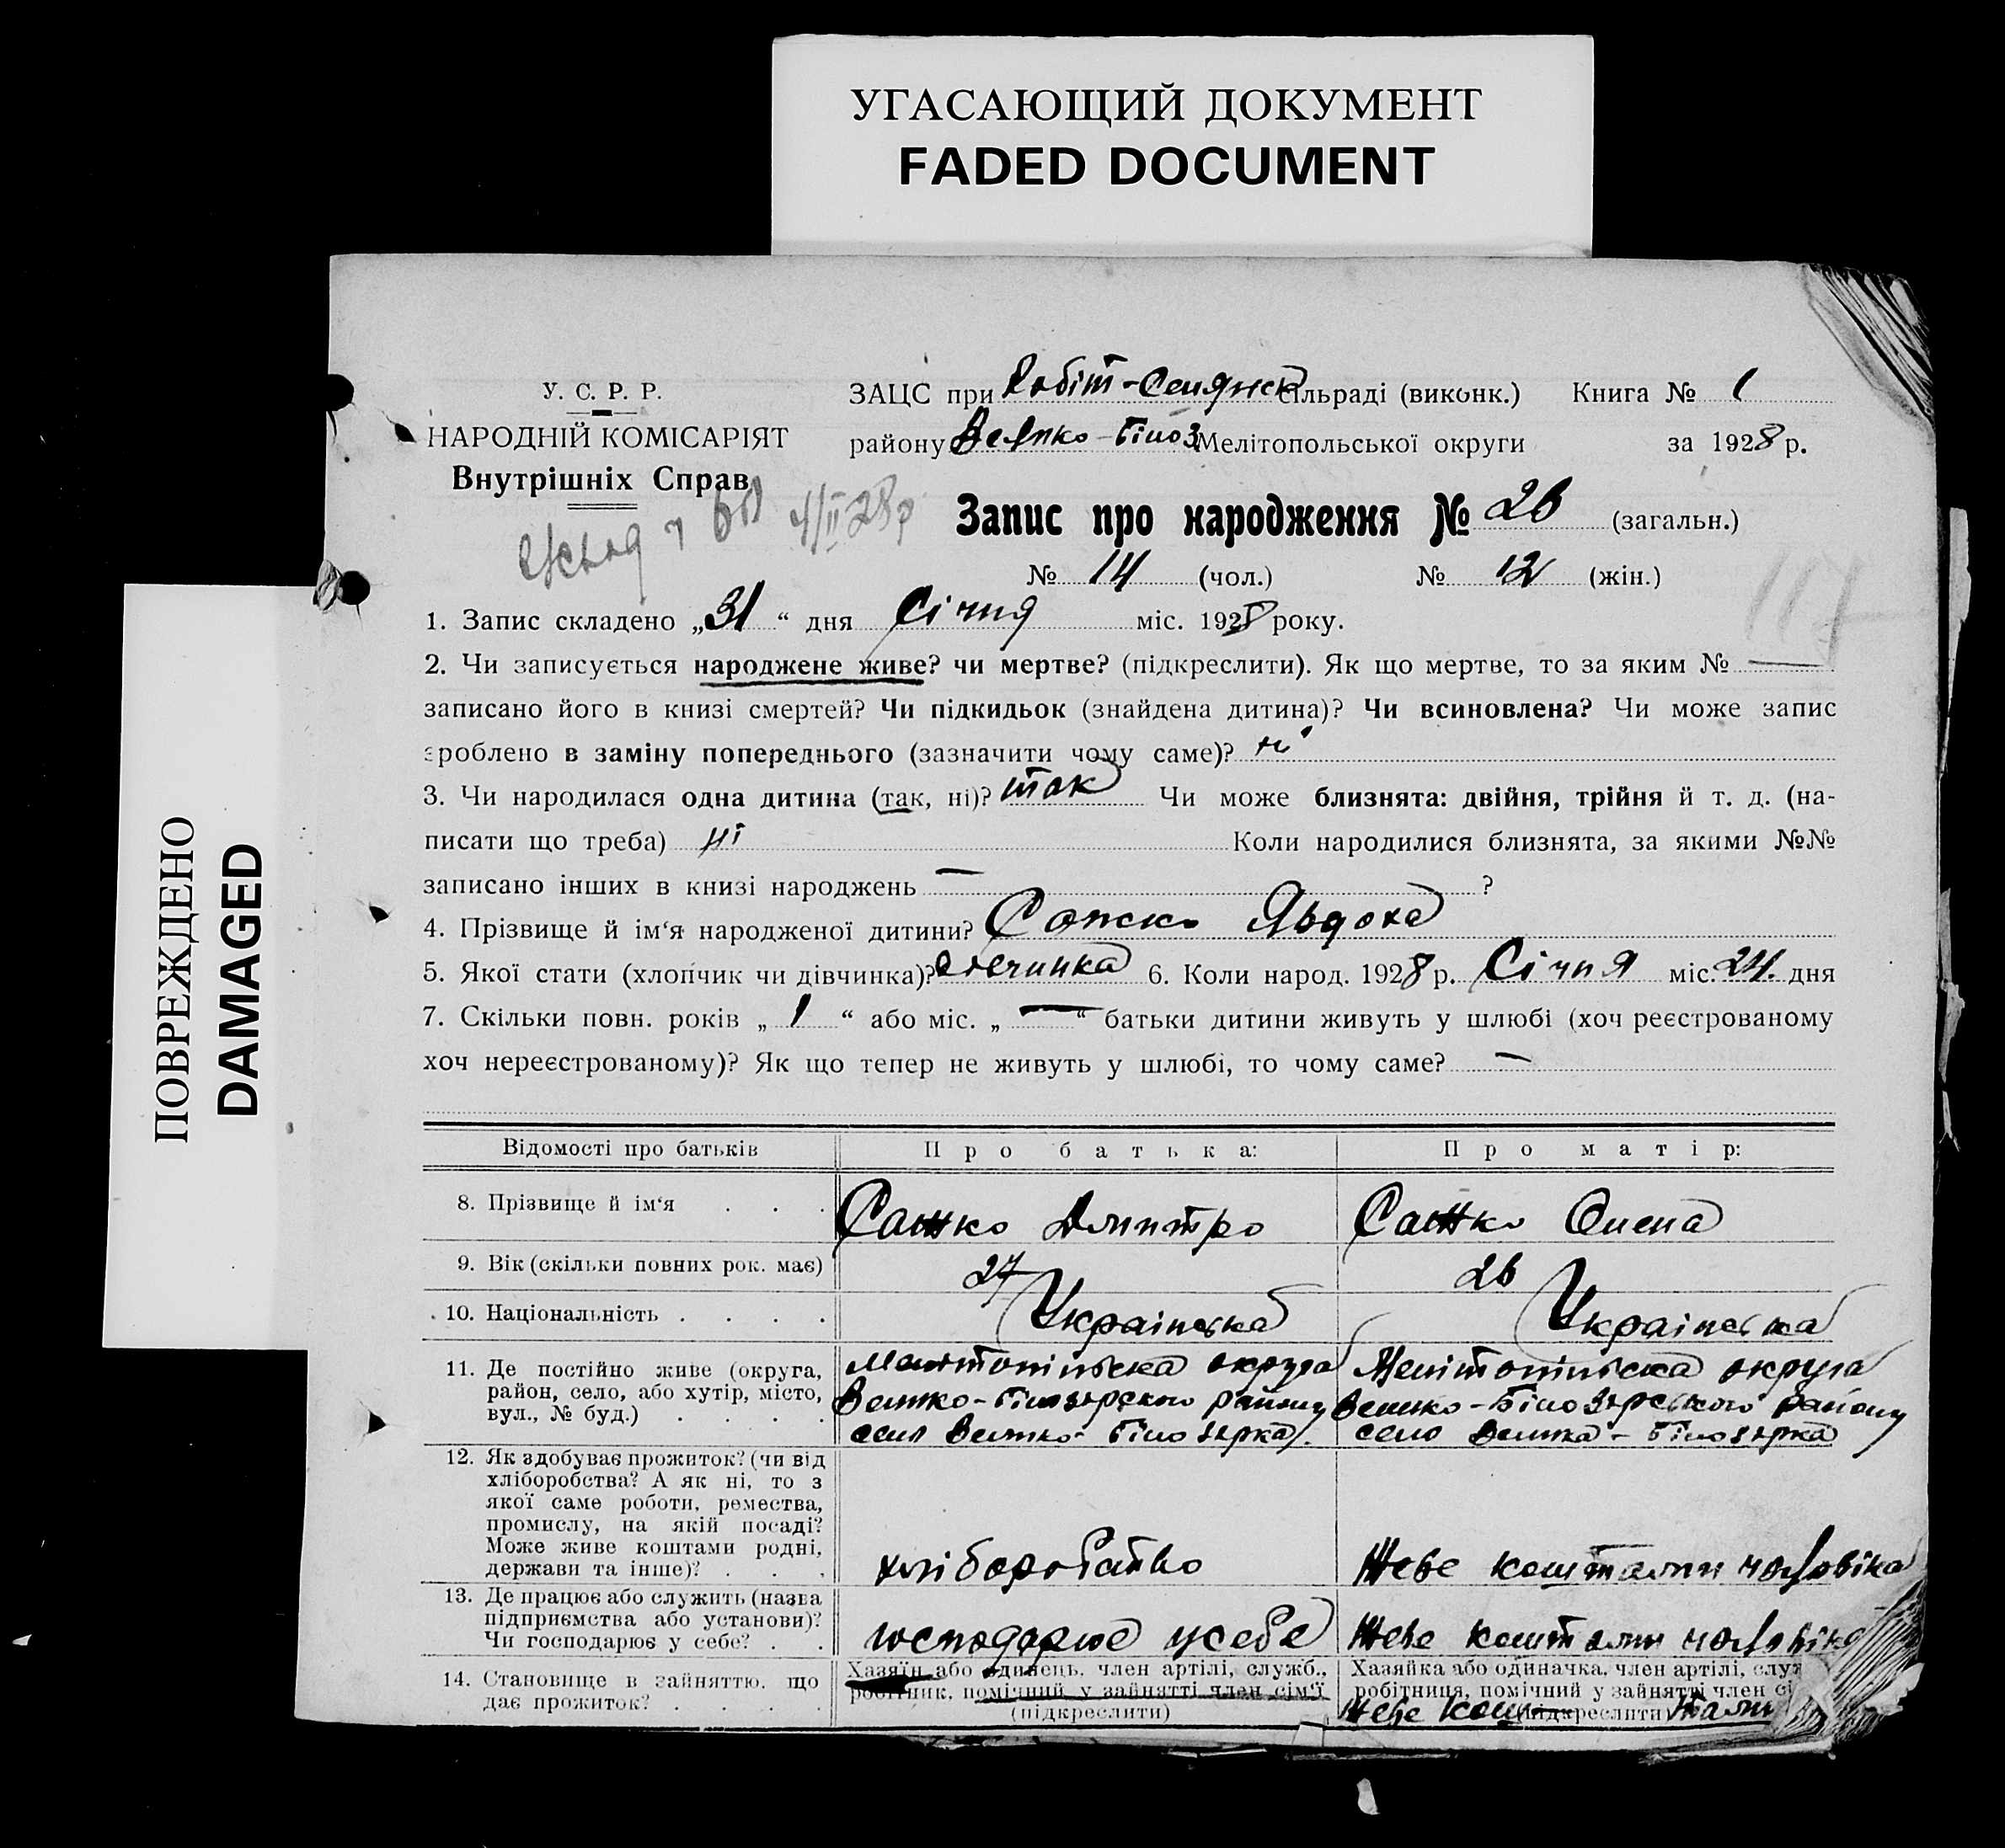 УГАСАЮЩИЙ ДОКУМЕНТ
FADED DOCUMENT
ПОВРЕЖДЕНО
DAMAGED
У. С. Р. Р.
НАРОДНІЙ КОМІСАРІЯТ
Внутрішніх Справ
ЗАЦС при Робіт-Селянск сільраді (виконк.) Книга № 1
району Велико-Білоз Мелітопольської округи за 1928 р.
4/II 28р
Запис про народження № 26 (загальн.)
№ 14 (чол.) № 12 (жін.)
117
1. Запис складено „31“ дня Січня міс. 1928 року.
2. Чи записується народжене живе? чи мертве? (підкреслити). Як що мертве, то за яким № —
записано його в книзі смертей? Чи підкидьок (знайдена дитина)? Чи всиновлена? Чи може запис
зроблено в заміну попереднього (зазначити чому саме)? ні
3. Чи народилася одна дитина (так, ні)? так Чи може близнята: двійня, трійня й т. д. (на-
писати що треба) ні Коли народилися близнята, за якими №№
записано інших в книзі народжень — ?
4. Прізвище й ім‘я народженої дитини? Явдоха
5. Якої стати (хлопчик чи дівчинка)? дівчинка 6. Коли народ. 1928 р. Січня міс. 24. дня
7. Скільки повн. років „ 1 “ або міс. „ — “ батьки дитини живуть у шлюбі (хоч реєстрованому
хоч нереєстрованому)? Як що тепер не живуть у шлюбі, то чому саме? —
Відомості про батьків Про батька: Про матір:
8. Прізвище й ім‘я Сажко Дмитро Сажко Олена
9. Вік (скільки повних рок. має) 27 26
10. Національність Украінська Украінська
11. Де постійно живе (округа, Мелітопільска округа Мелітопільска округа
район, село, або хутір, місто, Велико-Білозерского району Велико-Білозерського району
вул., № буд.) село Велико-Білозерка. село Велика-Білозерка
12. Як здобуває прожиток? (чи від
хліборобства? А як ні, то з
якої саме роботи, ремества,
промислу, на якій посаді?
Може живе коштами родні,
держави та інше)? хліборобство Жеве коштами чоловіка
13. Де працює або служить (назва
підприємства або установи)?
Чи господарює у себе? господарює усебе Жеве коштами чоловіка
14. Становище в зайняттю, що Хазяїн або одинець, член артілі, служб., Хазяйка або одиначка, член артілі, служ
дає прожиток? робітник, помічний у зайнятті член сім‘ї робітниця, помічний у зайнятті член сі
(підкреслити) Жеве коштами (підкреслити)